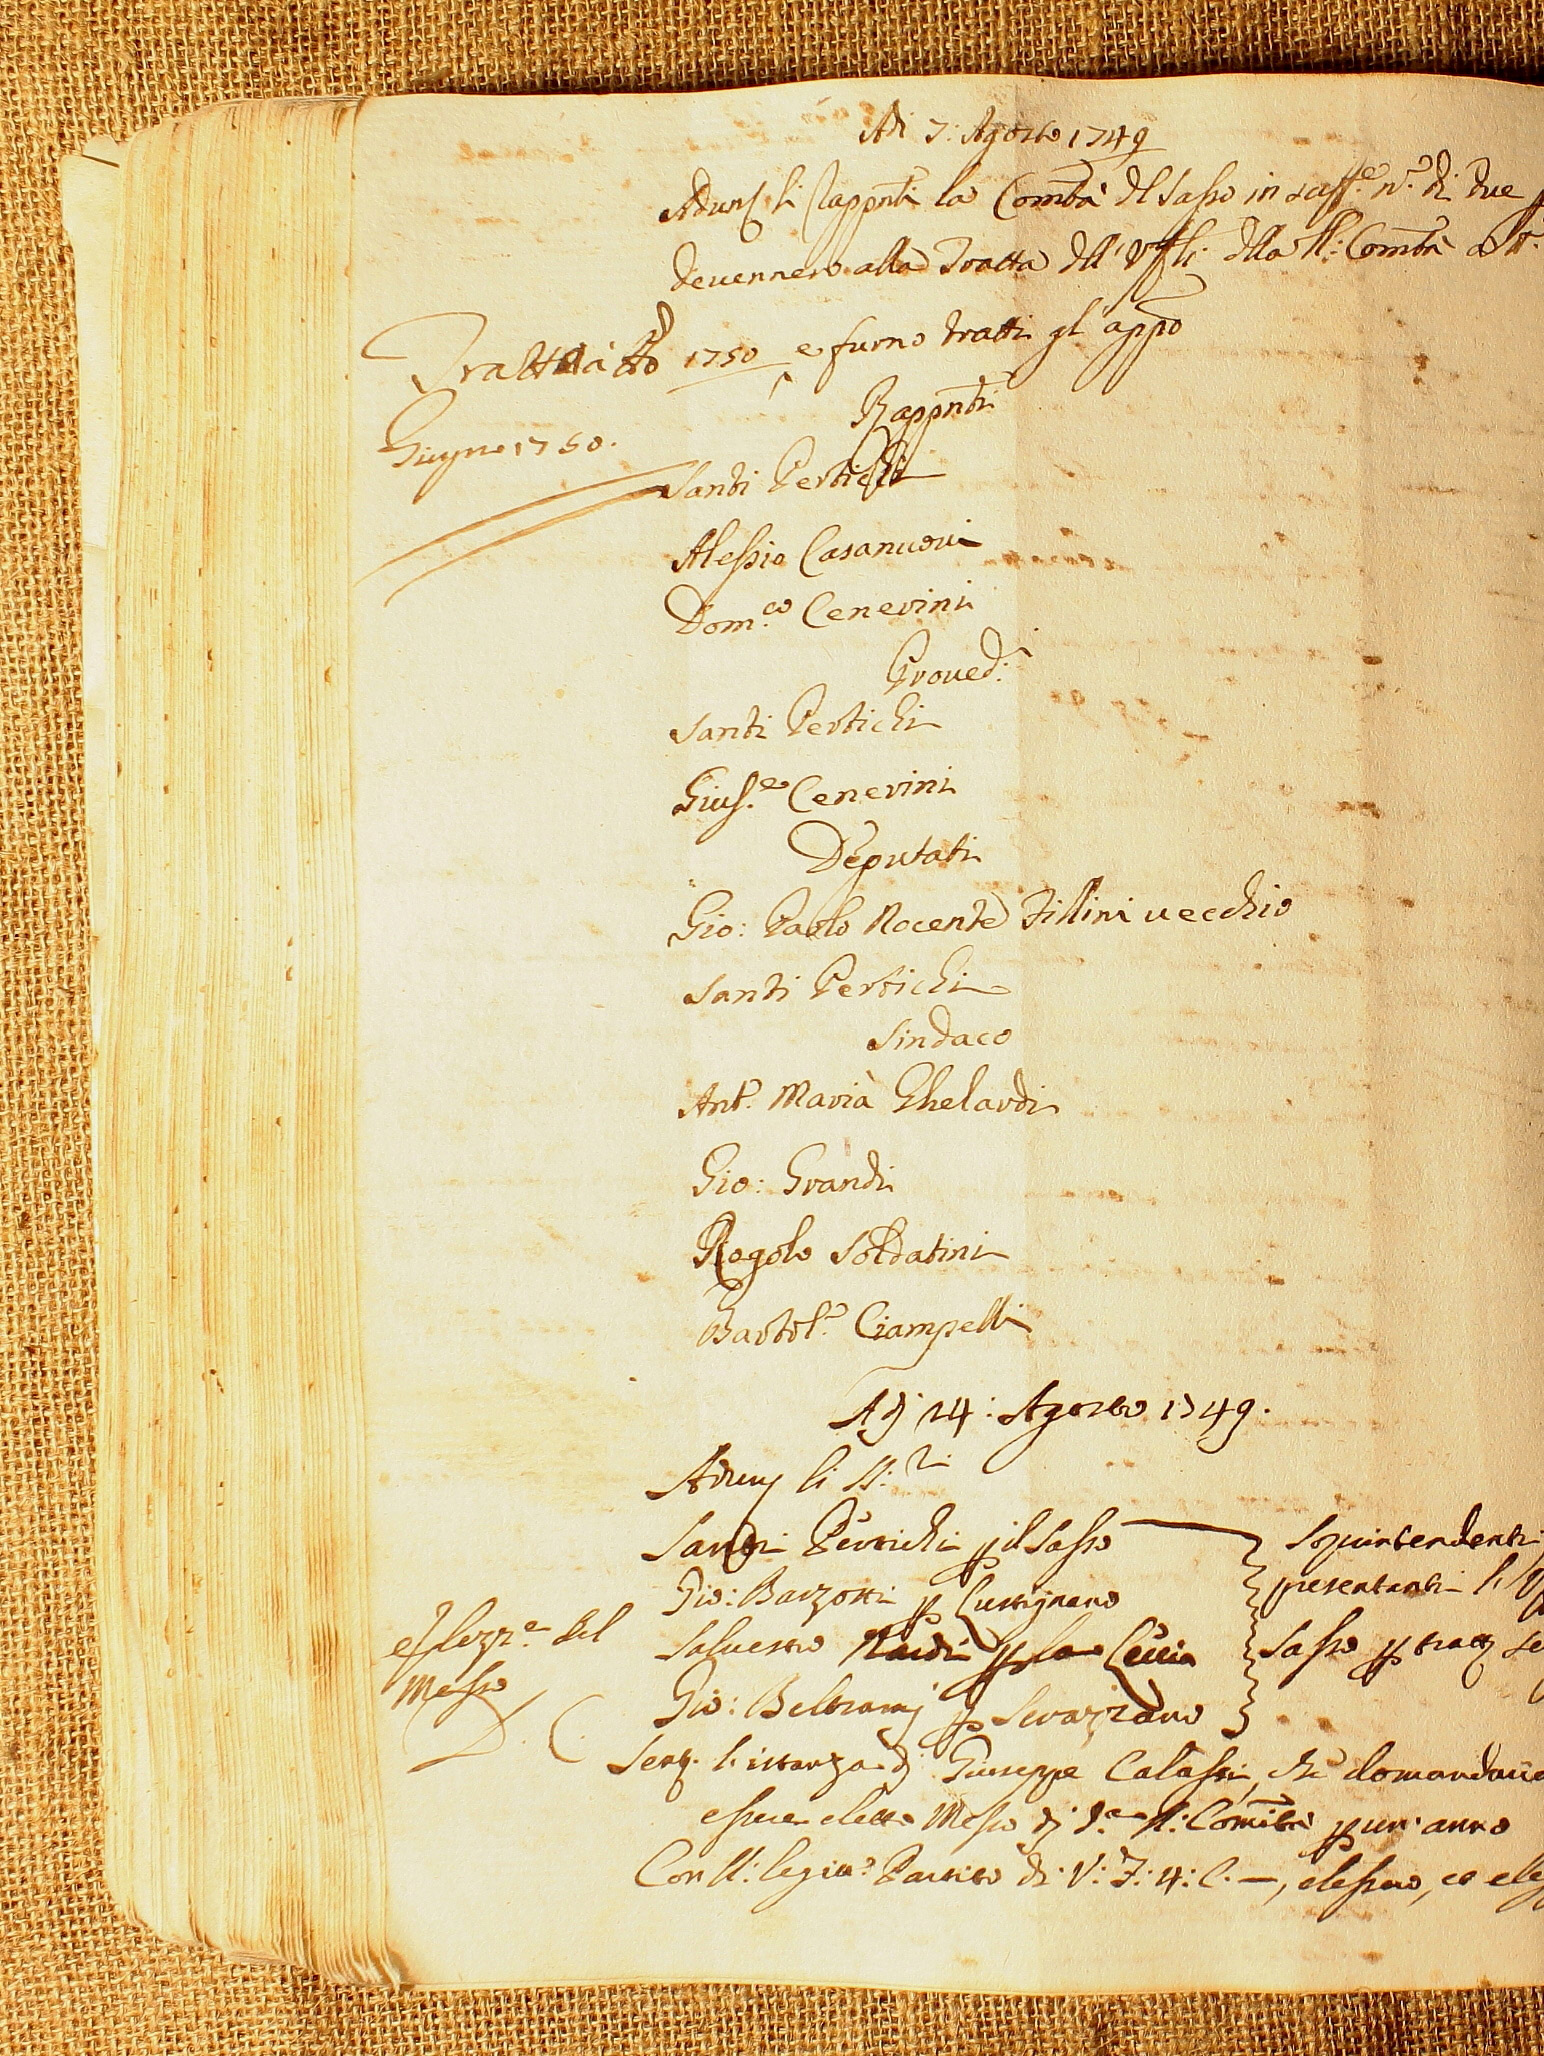 Adi 7: Agosto 1749
Adun: li Rappnti la Comtà del Sasso in suff.e n.o di due
devennero alla Tratta dell' Uffli della Comtà
Tratta à tto 1750 e furno tratti gl' appo
Giugno 1750.
Rappnti
Santi Pertichi
Alessio Casanuovi
Dom.co Cenerini
Proued:
Santi Pertichi
Gius.e Cenerini
Deputati
Gio: Paolo Nocente Fillini uecchio
Santi Pertichi
Sindaco
Ant.o Maria Ghelardi
Gio: Grandi
Regolo Soldatini
Bartol.o Ciampelli
Adj 14: Agosto 1749.
Adunj li SS.ri
Santi Pertichi p il Sasso
Gio: Barzotti p Lustignano
Saluestro Nardi p la Leccia
Gio: Beltramj p Serazzano
Sopuintendenti
presentanti li
Sasso p
Elezz.e del
Messo
Sent. l' istanza dj Giuseppe Calastri, che domandaua
essere eletto Messo dj d.a Comità p un' anno
Con legit.o Partito di V: F: 4: C. —, elessero, et